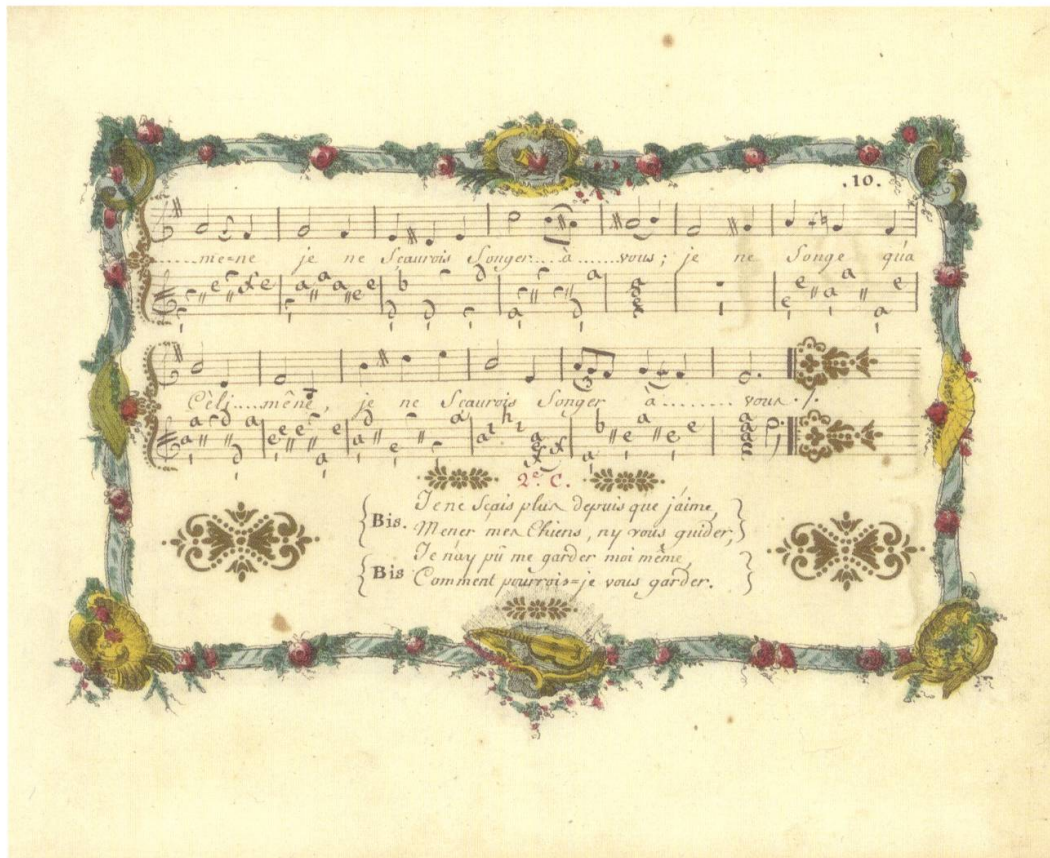 .10.
......me=ne je ne Sçaurois Songer....à.....vous; je ne Songe qu'à
Céli....mêne, je ne Sçaurois Songer à......... vous./.
2.e C.
Bis. Je ne Sçais plus depuis que j'aime,
Mener mes Chiens, ny vous guider;
Bis Je n'ay pû me garder moi même,
Comment pourrois=je vous garder.